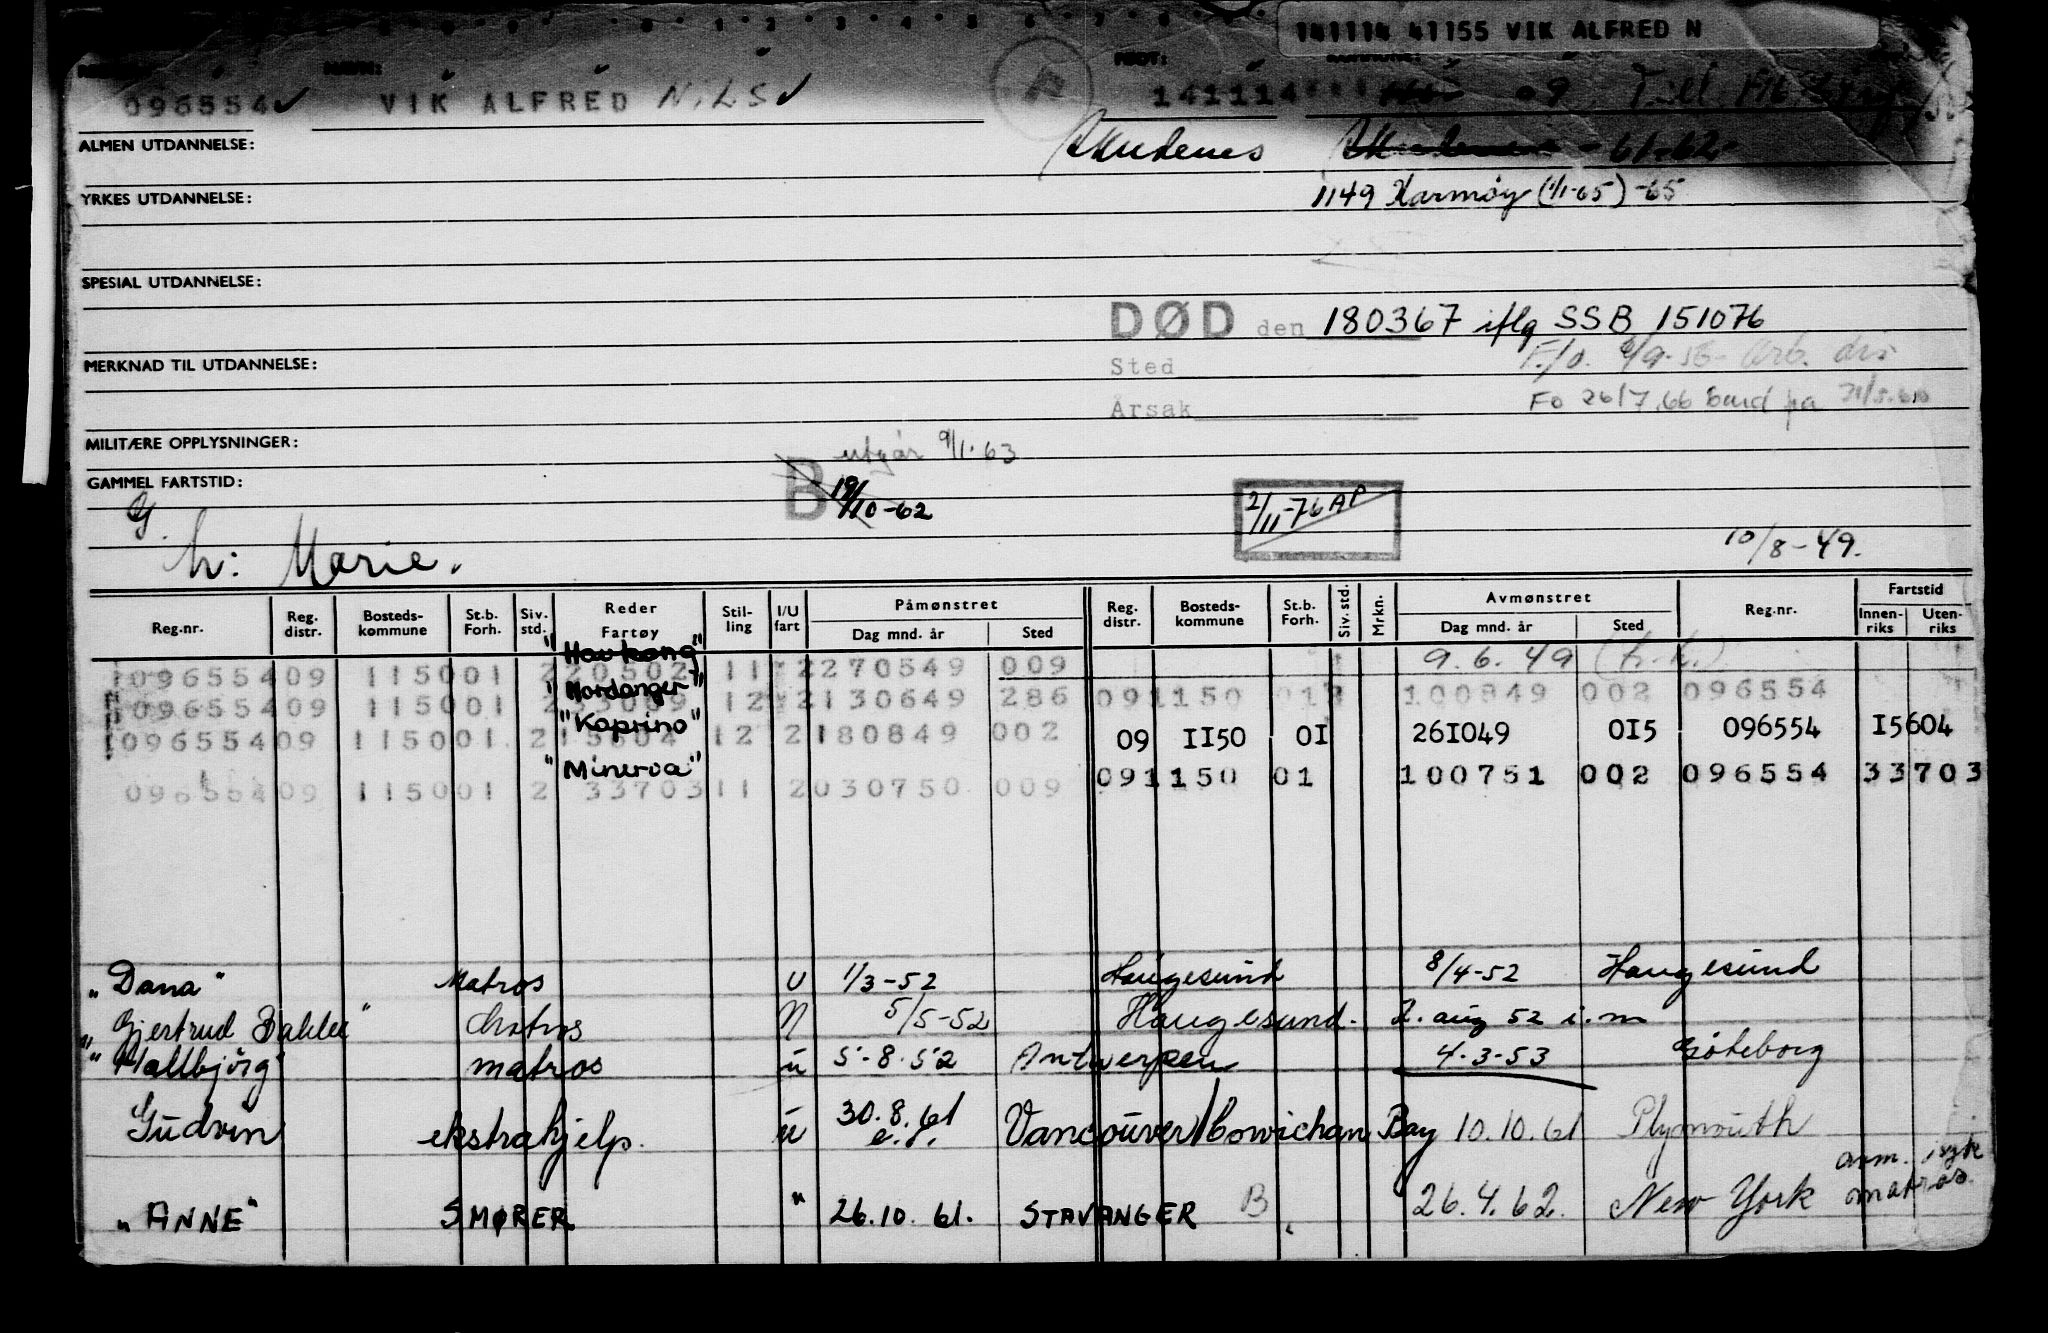 141114 41155 VIK ALFRED N
NAVN:
FØDT:
096554✓ VIK ALFRED NILS✓ 141114*** 09
ALMEN UTDANNELSE:
Skudenes -61-62-
YRKES UTDANNELSE:
1149 Karmøy (1/1-65) -65
SPESIAL UTDANNELSE:
DØD den 180367 iflg SSB 151076
MERKNAD TIL UTDANNELSE:
Sted
F/o. 6/9-56
Årsak
Fo 26/7.66
MILITÆRE OPPLYSNINGER:
utgår 9/1.63
GAMMEL FARTSTID:
G
B 19/10-62
2/11-76 AP
h: Marie.
10/8-49.
Reg.nr. Reg. distr. Bosteds-kommune St.b. Forh. Siv. std. Reder Fartøy Stil-ling I/U fart Påmønstret Dag mnd. år Sted Reg. distr. Bosteds-kommune St.b. Forh. Siv. std. Mrkn. Avmønstret Dag mnd. år Sted Reg.nr. Fartstid Innen-riks Uten-riks
"Havkong"
109655409 115001 2 20502 11 2270549 009 9.6.49 (h.k.)
"Hordanger"
09655409 115001 2 33009 12 2130649 286 091150 01 100849 002 096554
"Kaprino"
109655409 115001 2 15604 12 2 180849 002 09 1150 01 261049 015 096554 15604
"Minerva"
09655409 115001 2 33703 11 2030750 009 091150 01 100751 002 096554 33703
"Dana" Matros U 1/3-52 Haugesund 8/4-52 Haugesund
"Gjertrud Bakke" Matros N 5/5-52 Haugesund. 2. aug 52 i.m
"Hallbjørg" matros u 5.8.52 Antwerpen 4.3-53 Göteborg
Gudvin ekstrahjelp. u 30.8.61 e.f. Vancouver/Cowichan Bay 10.10.61 Plymouth
"ANNE" SMØRER " 26.10.61. STAVANGER B 26.4.62. New York avm. syk matros.